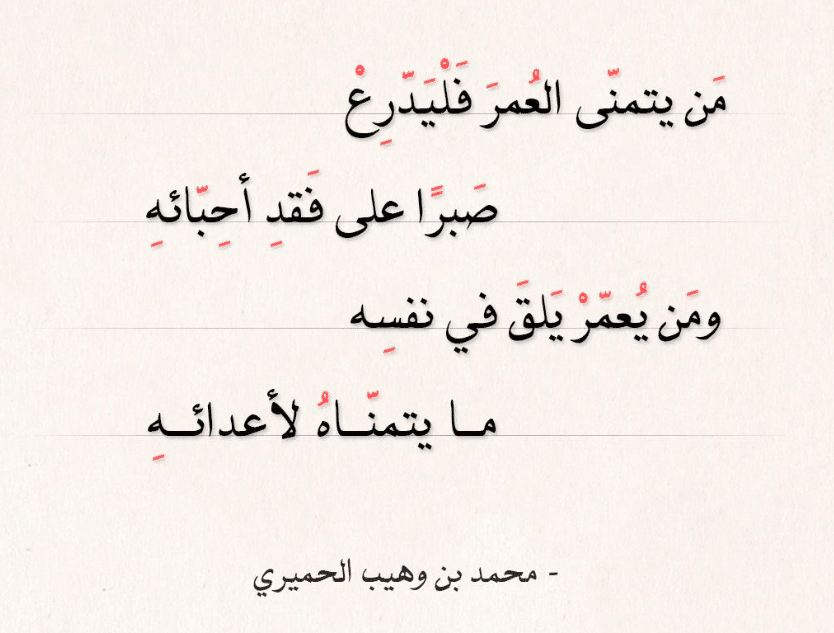 مَن يتمنّى العُمرَ فَلْيَدّرِعْ
صَبرًا على فَقدِ أحِبّائهِ
ومَن يُعمّرْ يَلقَ في نفسِه
مـا يتمنّـاهُ لأعدائـهِ
- محمد بن وهيب الحميري